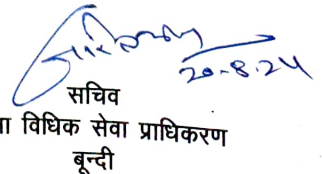 20-8-24
सचिव
विधिक सेवा प्राधिकरण
बून्दी